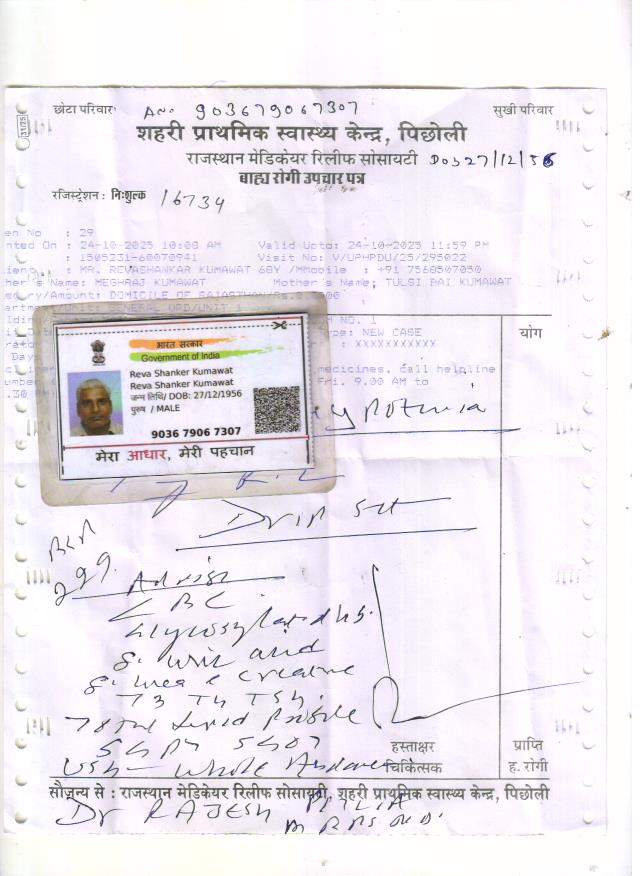 छोटा परिवार ANo 903679067307 सुखी परिवार
शहरी प्राथमिक स्वास्थ्य केन्द्र, पिछोली
राजस्थान मेडिकेयर रिलीफ सोसायटी DOB 27/12/56
बाह्य रोगी उपचार पत्र
रजिस्ट्रेशन : निःशुल्क 16734
en No : 29
nted On : 24-10-2025 10:08 AM Valid Upto: 24-10-2025 11:59 PM
: 1505231-60070941 Visit No: V/UPHPDU/25/295022
ient : MR. REVASHANKAR KUMAWAT 68Y /M Mobile : +91 7568507050
her's Name: MEGHRAJ KUMAWAT Mother's Name: TULSI BAI KUMAWAT
/Amount: DOMICILE OF RAJASTHAN/Rs.
GENERAL OPD/UNIT 1
M NO. 1
ype: NEW CASE योग
: XXXXXXXXXXX
Days
medicines, call helpline
Fri. 9.00 AM to
.30 PM)
भारत सरकार
Government of India
Reva Shanker Kumawat
Reva Shanker Kumawat
जन्म तिथि/ DOB: 27/12/1956
पुरुष / MALE
9036 7906 7307
मेरा आधार, मेरी पहचान
299
Advise
CBC
S. uric acid
S. urea & creatine
T3 T4 TSH
Lipid Profile
SGPT SGOT
हस्ताक्षर प्राप्ति
USG Whole Abdomen
चिकित्सक ह. रोगी
सौजन्य से : राजस्थान मेडिकेयर रिलीफ सोसायटी, शहरी प्राथमिक स्वास्थ्य केन्द्र, पिछोली
Dr RAJESH